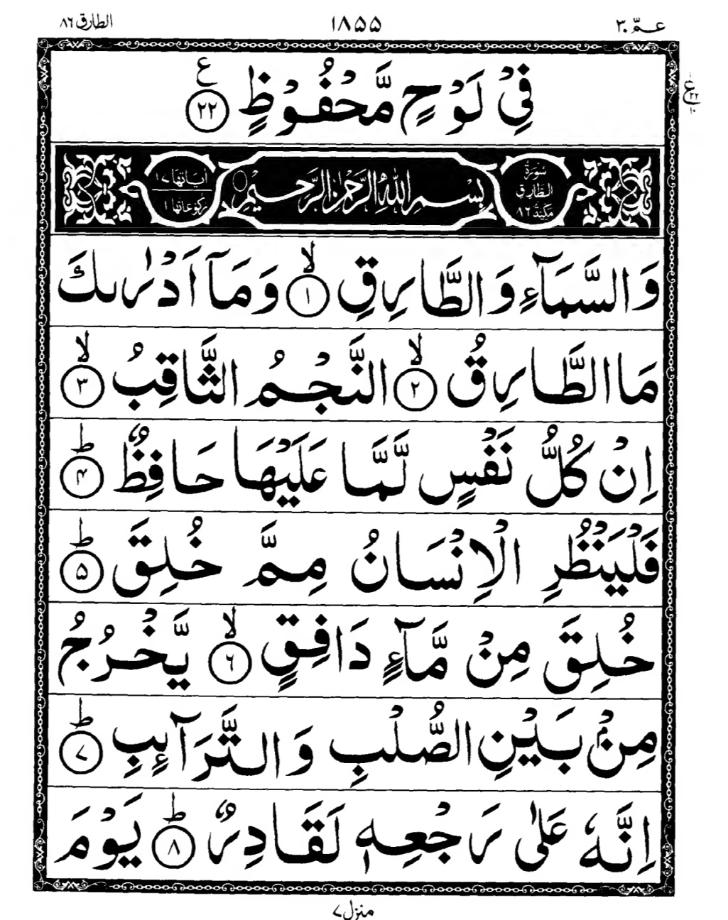 الطارق ٨٦
١٨٥٥
عـمّ ٣٠
فِیْ لَوْحٍ مَّحْفُوْظٍ ﴿٢٢﴾ ع
ع ٢٢
سُوْرَةُ الطَّارِقِ مَكِّيَّةٌ ٨٦
بِسْمِ اللهِ الرَّحْمٰنِ الرَّحِيْمِ
اٰيَاتُهَا ١٧
رُكُوْعَاتُهَا ١
وَالسَّمَآءِ وَالطَّارِقِ ﴿١﴾ۙ وَمَآ اَدْرٰىكَ
مَا الطَّارِقُ ﴿٢﴾ۙ النَّجْمُ الثَّاقِبُ ﴿٣﴾ۙ
اِنْ كُلُّ نَفْسٍ لَّمَّا عَلَيْهَا حَافِظٌ ﴿٤﴾ؕ
فَلْيَنْظُرِ الْاِنْسَانُ مِمَّ خُلِقَ ﴿٥﴾ؕ
خُلِقَ مِنْ مَّآءٍ دَافِقٍ ﴿٦﴾ۙ يَّخْرُجُ
مِنْۢ بَيْنِ الصُّلْبِ وَالتَّرَآئِبِ ﴿٧﴾ؕ
اِنَّهٗ عَلٰى رَجْعِهٖ لَقَادِرٌ ﴿٨﴾ؕ يَوْمَ
منزل ٧